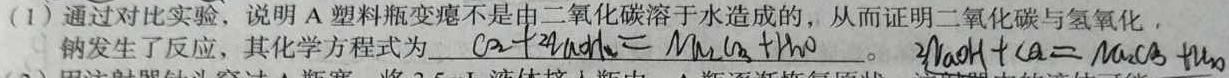 （1）通过对比实验，说明 A 塑料瓶变瘪不是由二氧化碳溶于水造成的，从而证明二氧化碳与氢氧化
钠发生了反应，其化学方程式为 CO2+2NaOH = Na2CO3+H2O 。 2NaOH+CO2=Na2CO3+H2O